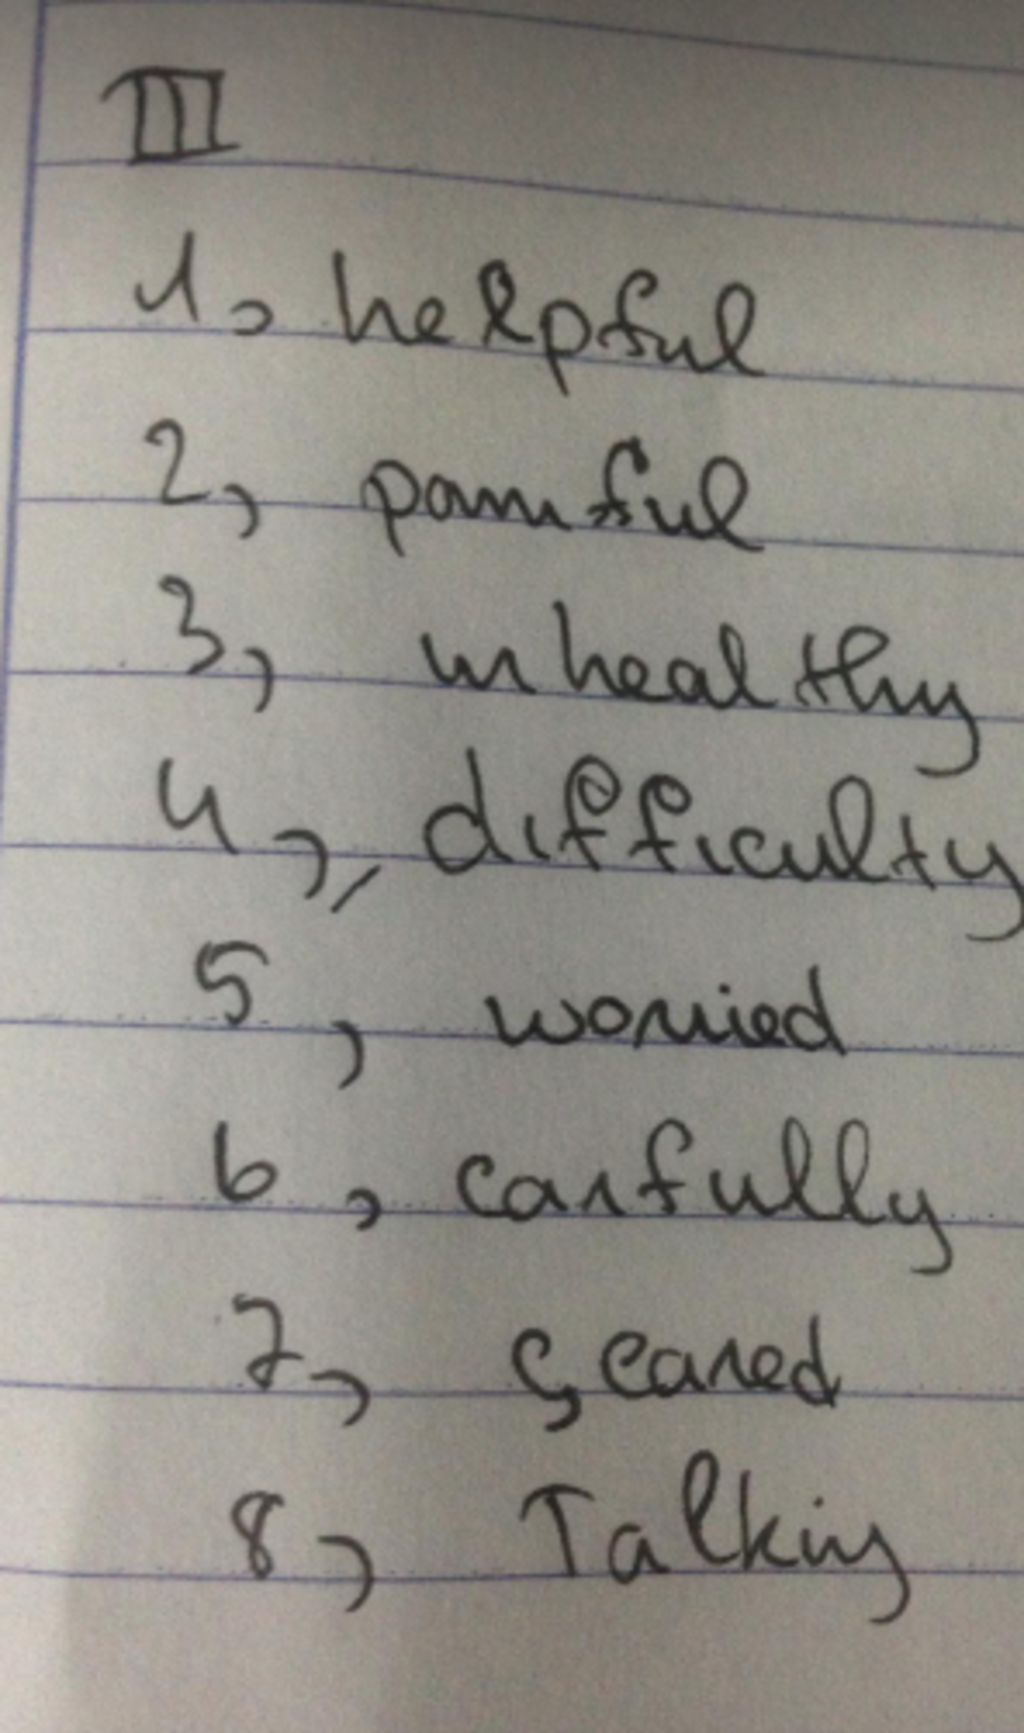 III
1, helpful
2, painful
3, unhealthy
4, difficulty
5, worried
6, carfully
7, sceared
8, Talking